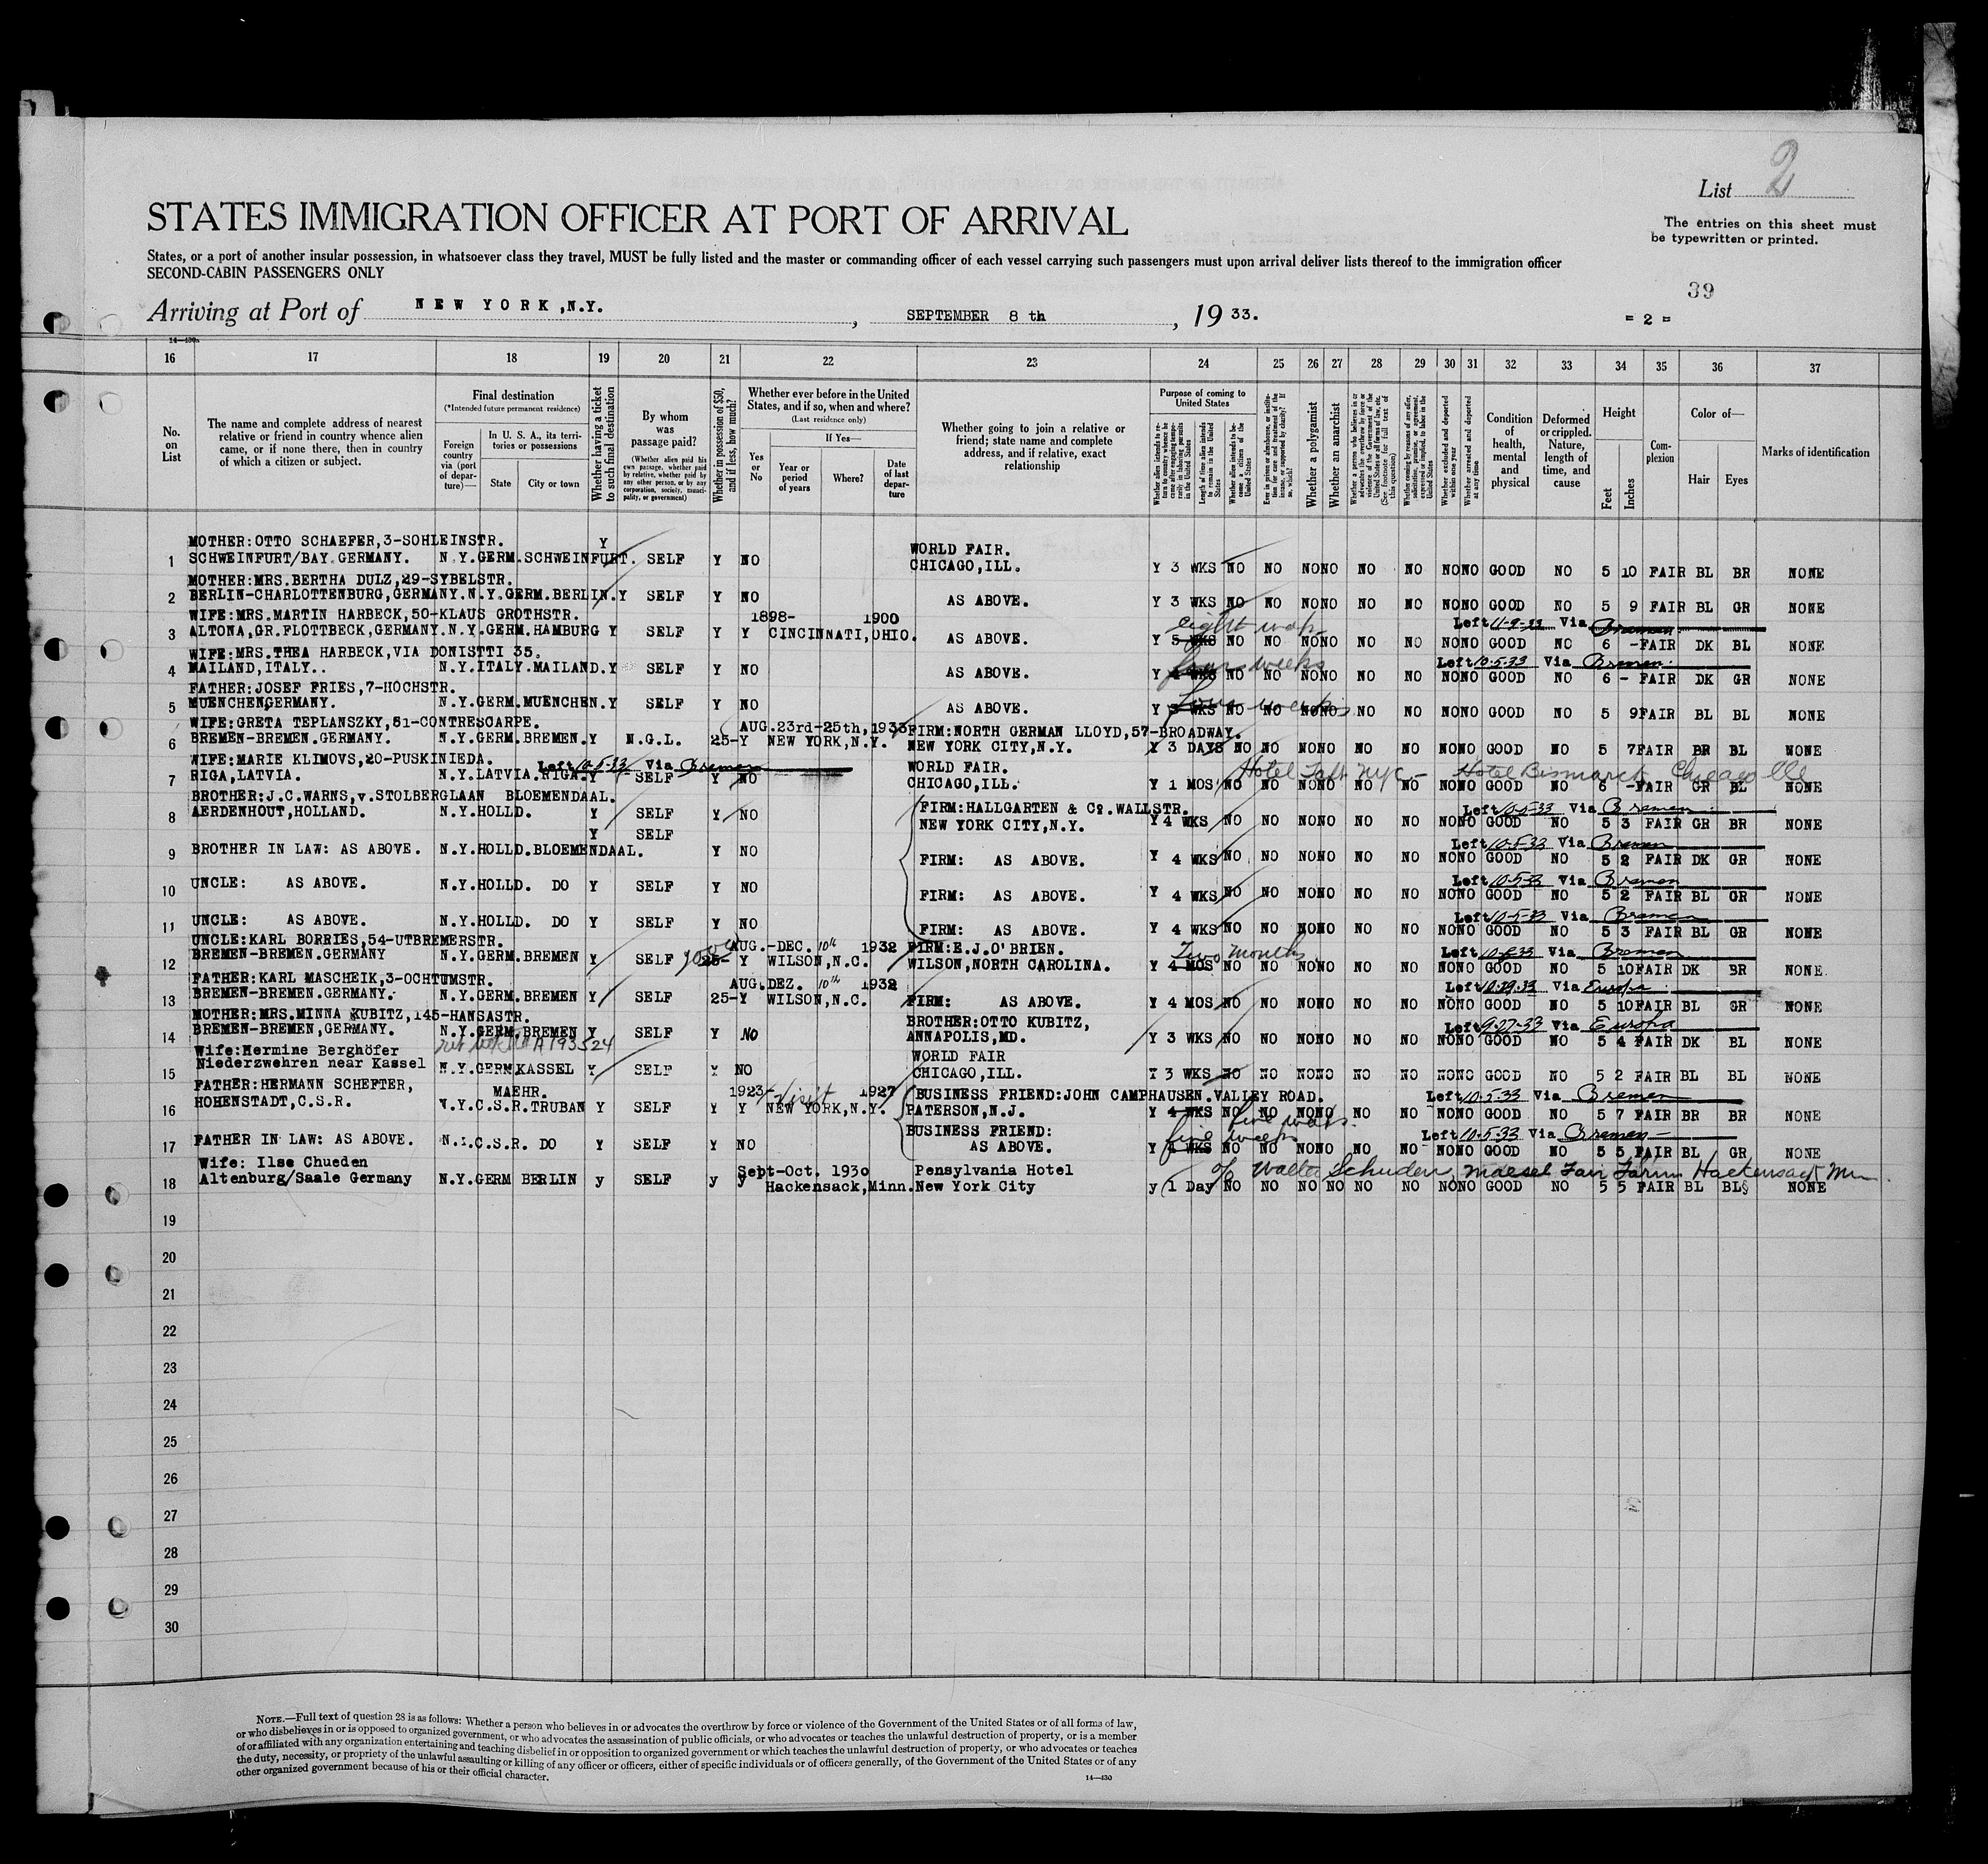 List 2
STATES IMMIGRATION OFFICER AT PORT OF ARRIVAL
The entries on this sheet must
be typewritten or printed.
States, or a port of another insular possession, in whatsoever class they travel, MUST be fully listed and the master or commanding officer of each vessel carrying such passengers must upon arrival deliver lists thereof to the immigration officer
SECOND-CABIN PASSENGERS ONLY
39
Arriving at Port of NEW YORK, N.Y., SEPTEMBER 8 th, 19 33.
= 2 =
14—430a
16 17 18 19 20 21 22 23 24 25 26 27 28 29 30 31 32 33 34 35 36 37
No. on List
The name and complete address of nearest relative or friend in country whence alien came, or if none there, then in country of which a citizen or subject.
Final destination
(*Intended future permanent residence)
Foreign country via (port of departure)—
In U. S. A., its territories or possessions
State
City or town
Whether having a ticket to such final destination
By whom was passage paid?
(Whether alien paid his own passage, whether paid by relative, whether paid by any other person, or by any corporation, society, municipality, or government)
Whether in possession of $50, and if less, how much?
Whether ever before in the United States, and if so, when and where?
(Last residence only)
Yes or No
If Yes—
Year or period of years
Where?
Date of last departure
Whether going to join a relative or friend; state name and complete address, and if relative, exact relationship
Purpose of coming to United States
Whether alien intends to return to country whence he came after engaging temporarily in laboring pursuits in the United States
Length of time alien intends to remain in the United States
Whether alien intends to become a citizen of the United States
Ever in prison or almshouse, or institution for care and treatment of the insane, or supported by charity? If so, which?
Whether a polygamist
Whether an anarchist
Whether a person who believes in or advocates the overthrow by force or violence of the Government of the United States or all forms of law, etc. (See footnote for full text of this question)
Whether coming by reasons of any offer, solicitation, promise, or agreement, expressed or implied, to labor in the United States
Whether excluded and deported within one year
Whether arrested and deported at any time
Condition of health, mental and physical
Deformed or crippled. Nature, length of time, and cause
Height
Feet
Inches
Complexion
Color of—
Hair
Eyes
Marks of identification
MOTHER:OTTO SCHAEFER,3-SOHLEINSTR. Y WORLD FAIR.
1 SCHWEINFURT/BAY.GERMANY. N.Y.GERM.SCHWEINFURT. SELF Y NO CHICAGO,ILL. Y 3 WKS NO NO NONO NO NO NONO GOOD NO 5 10 FAIR BL BR NONE
MOTHER:MRS.BERTHA DULZ,29-SYBELSTR.
2 BERLIN-CHARLOTTENBURG,GERMANY.N.Y.GERM.BERLIN.Y SELF Y NO AS ABOVE. Y 3 WKS NO NO NONO NO NO NONO GOOD NO 5 9 FAIR BL GR NONE
WIFE:MRS.MARTIN HARBECK,50-KLAUS GROTHSTR. 1898- 1900 eight Left 11-2-33 Via Bremen
3 ALTONA,GR.FLOTTBECK,GERMANY.N.Y.GERM.HAMBURG Y SELF Y Y CINCINNATI,OHIO. AS ABOVE. Y 5 WKS NO NO NONO NO NO NONO GOOD NO 6 -FAIR DK BL NONE
WIFE:MRS.THEA HARBECK,VIA DONISTTI 35. four weeks Left 10-5-33 Via Bremen.
4 MAILAND,ITALY.. N.Y.ITALY.MAILAND.Y SELF Y NO AS ABOVE. Y 4 WKS NO NO NONO NO NO NONO GOOD NO 6 - FAIR DK GR NONE
FATHER:JOSEF FRIES,7-HOCHSTR. four weeks
5 MUENCHEN,GERMANY. N.Y.GERM.MUENCHEN.Y SELF Y NO AS ABOVE. Y 3 WKS NO NO NONO NO NO NONO GOOD NO 5 9FAIR BL BL NONE
WIFE:GRETA TEPLANSZKY,51-CONTRESCARPE. AUG.23rd-25th,1933 FIRM:NORTH GERMAN LLOYD,57-BROADWAY.
6 BREMEN-BREMEN.GERMANY. N.Y.GERM.BREMEN.Y N.G.L. 25-Y NEW YORK,N.Y. NEW YORK CITY,N.Y. Y 3 DAYS NO NO NONO NO NO NONO GOOD NO 5 7FAIR BR BL NONE
WIFE:MARIE KLIMOVS,20-PUSKINIEDA. Left 10-5-33 Via Bremen WORLD FAIR. Hotel Taft NYC - Hotel Bismarck Chicago Ill
7 RIGA,LATVIA. N.Y.LATVIA.RIGA.Y SELF Y NO CHICAGO,ILL. Y 1 MOS NO NO NONO NO NO NONO GOOD NO 6 -FAIR GR BL NONE
BROTHER:J.C.WARNS,v.STOLBERGLAAN BLOEMENDAAL. FIRM:HALLGARTEN & Co.WALLSTR. Left 10-5-33 Via Bremen
8 AERDENHOUT,HOLLAND. N.Y.HOLLD. Y SELF Y NO NEW YORK CITY,N.Y. Y 4 WKS NO NO NONO NO NO NONO GOOD NO 5 3 FAIR GR BR NONE
Y SELF Left 10-5-33 Via Bremen
9 BROTHER IN LAW: AS ABOVE. N.Y.HOLLD.BLOEMENDAAL. Y NO FIRM: AS ABOVE. Y 4 WKS NO NO NONO NO NO NONO GOOD NO 5 2 FAIR DK GR NONE
Left 10-5-33 Via Bremen
10 UNCLE: AS ABOVE. N.Y.HOLLD. DO Y SELF Y NO FIRM: AS ABOVE. Y 4 WKS NO NO NONO NO NO NONO GOOD NO 5 2 FAIR BL GR NONE
Left 10-5-33 Via Bremen
11 UNCLE: AS ABOVE. N.Y.HOLLD. DO Y SELF Y NO FIRM: AS ABOVE. Y 4 WKS NO NO NONO NO NO NONO GOOD NO 5 3 FAIR BL GR NONE
UNCLE:KARL BORRIES,54-UTBREMERSTR. AUG.-DEC. 10th 1932 FIRM:E.J.O'BRIEN. Two months Left Via Bremen
12 BREMEN-BREMEN.GERMANY N.Y.GERM.BREMEN Y SELF 25- Y WILSON,N.C. WILSON,NORTH CAROLINA. Y 4 MOS NO NO NONO NO NO NONO GOOD NO 5 10FAIR DK BR NONE.
FATHER:KARL MASCHEIK,3-OCHTUMSTR. AUG.DEZ. 10th 1932 Left 10-29-33 Via Europa
13 BREMEN-BREMEN.GERMANY. N.Y.GERM.BREMEN Y SELF 25-Y WILSON,N.C. FIRM: AS ABOVE. Y 4 MOS NO NO NONO NO NO NONO GOOD NO 5 10FAIR BL GR NONE
MOTHER:MRS.MINNA KUBITZ,145-HANSASTR. BROTHER:OTTO KUBITZ, Left 9-27-33 Via Europa
14 BREMEN-BREMEN,GERMANY. N.Y.GERM.BREMEN Y SELF Y NO ANNAPOLIS,MD. Y 3 WKS NO NO NONO NO NO NONO GOOD NO 5 4 FAIR DK BL NONE
Wife:Hermine Berghöfer WORLD FAIR
15 Niederzwehren near Kassel N.Y.GERM.KASSEL Y SELF Y NO CHICAGO,ILL. Y 3 WKS NO NO NONO NO NO NONO GOOD NO 5 2 FAIR BL BL NONE
FATHER:HERMANN SCHEFTER, MAEHR. 1923- Visit 1927 BUSINESS FRIEND:JOHN CAMPHAUSEN.VALLEY ROAD. Left 10-5-33 Via Bremen
16 HOHENSTADT,C.S.R. N.Y.C.S.R.TRUBAN Y SELF Y Y NEW YORK,N.Y. PATERSON,N.J. Y 4 WKS NO NO NONO NO NO NONO GOOD NO 5 7 FAIR BR BR NONE
five weeks. BUSINESS FRIEND: five weeks Left 10-5-33 Via Bremen
17 FATHER IN LAW: AS ABOVE. N.Y.C.S.R. DO Y SELF Y NO AS ABOVE. Y 4 WKS NO NO NONO NO NO NONO GOOD NO 5 5 FAIR BL GR NONE
Wife: Ilse Chueden Sept-Oct. 1930 Pensylvania Hotel c/o Walter Farm Hackensack Minn.
18 Altenburg/Saale Germany N.Y.GERM BERLIN y SELF y y Hackensack,Minn. New York City y 1 Day NO NO NO NO NO NO NONO GOOD NO 5 5 FAIR BL BL NONE
19
20
21
22
23
24
25
26
27
28
29
30
NOTE.—Full text of question 28 is as follows: Whether a person who believes in or advocates the overthrow by force or violence of the Government of the United States or of all forms of law,
or who disbelieves in or is opposed to organized government, or who advocates the assassination of public officials, or who advocates or teaches the unlawful destruction of property, or is a member
of or affiliated with any organization entertaining and teaching disbelief in or opposition to organized government or which teaches the unlawful destruction of property, or who advocates or teaches
the duty, necessity, or propriety of the unlawful assaulting or killing of any officer or officers, either of specific individuals or of officers generally, of the Government of the United States or of any
other organized government because of his or their official character.
14—430